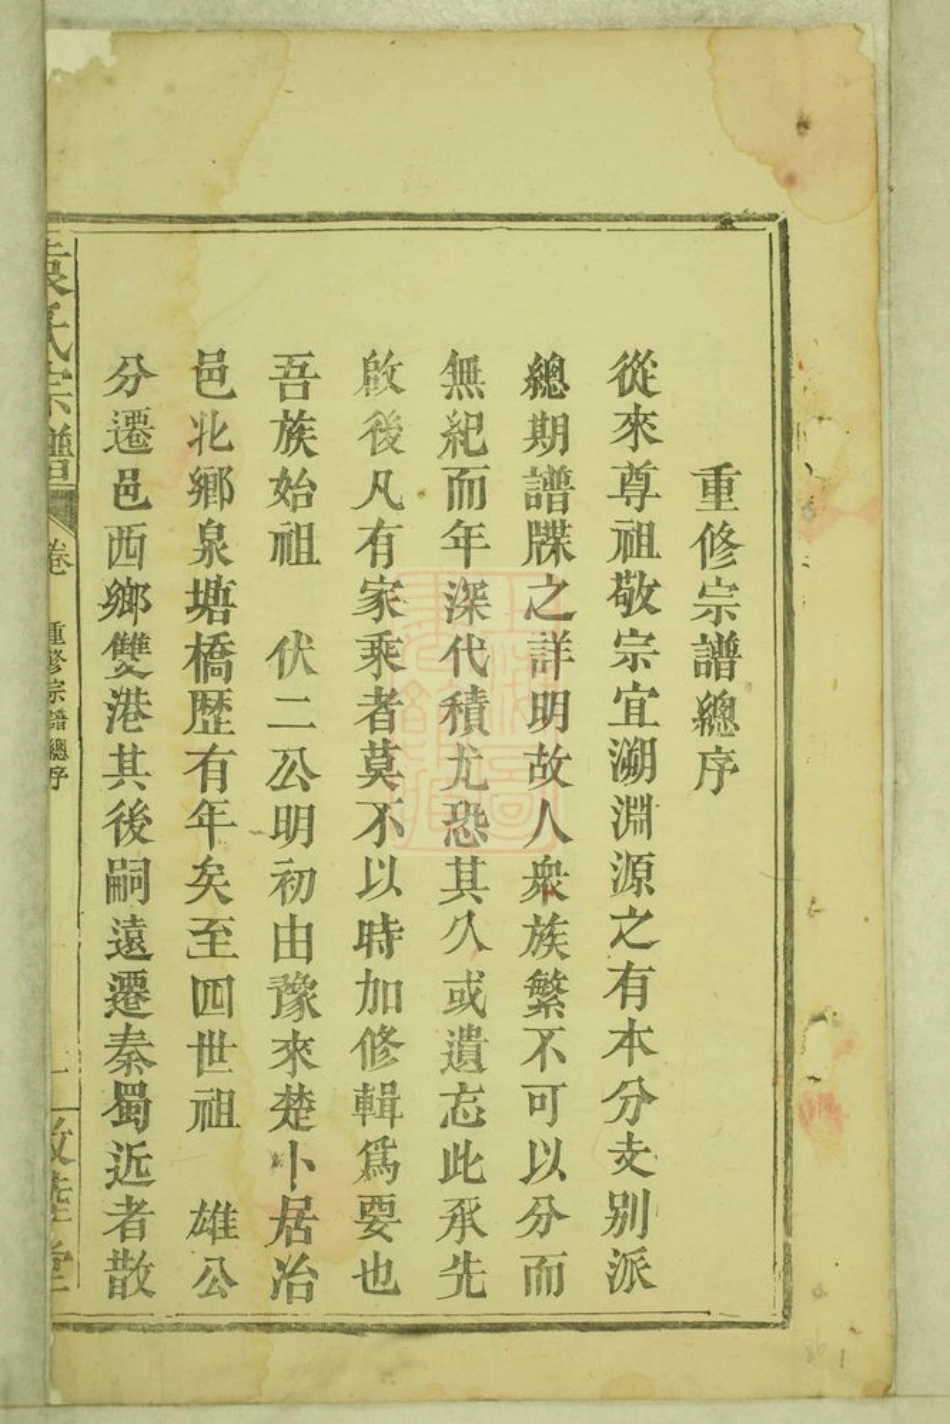 重修宗譜總序
從來尊祖敬宗宜溯淵源之有本分支别派
總期譜牒之詳明故人衆族繁不可以分而
無紀而年深代積尤恐其久或遺忘此承先
啟後凡有家乘者莫不以時加修輯爲要也
吾族始祖　伏二公明初由豫來楚卜居冶
邑北鄉泉塘橋歷有年矣至四世祖　雄公
分遷邑西鄉雙港其後嗣遠遷秦蜀近者散
袁氏宗譜
卷
重修宗譜總序
一
敦睦堂